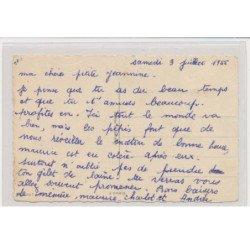 samedi 9 juillet 1955
ma chere petite Jeannine.
Je pense que tu as du beau temps
et que tu t'amuses beaucoup.
profites en. Ici tout le monde va
bien, mais les pépés font que de
nous réveiller le matin de bonne heure
maurice est en colère après eux.
surtout n'oublie pas de prendre
ton gilet de laine. tu verras vous
allez souvent promener. Bons baisers
de maurice, Charlot et André